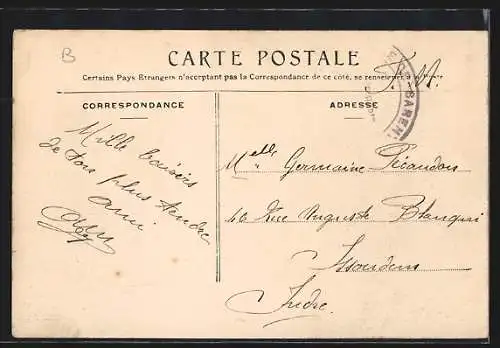 B
CARTE POSTALE
Certains Pays Etrangers n'acceptant pas la Correspondance de ce côté, se renseigner à la Poste
F. M.
BAREM
CORRESPONDANCE
ADRESSE
Mille baisers
de ton plus tendre
ami
Melle Germaine Pécaudon
46 Rue Auguste Blanqui
Issoudun
Indre